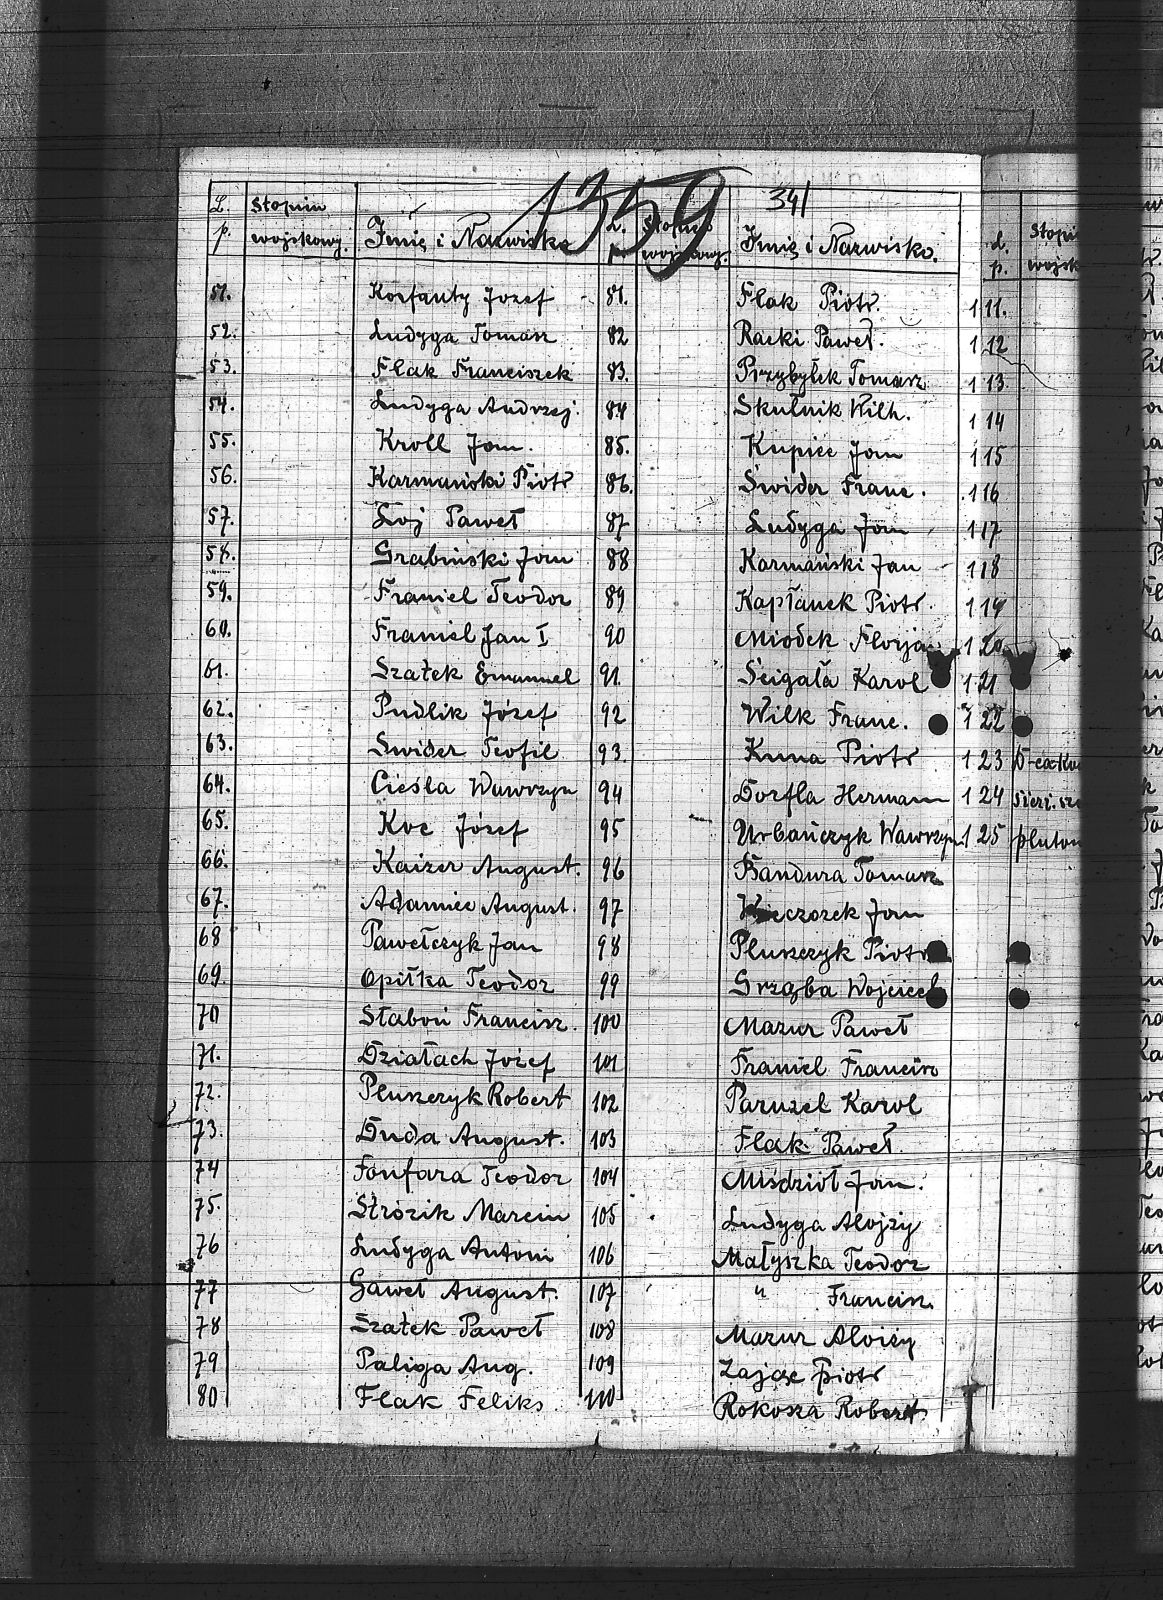 1359
341
L. p. Stopień wojskowy. Imię i Nazwisko L. p. Stopień wojskowy. Imię i Nazwisko. L. p.
51. Korfanty Józef 81. Flak Piotr. 111.
52. Ludyga Tomasz 82 Racki Paweł. 112
53. Flak Franciszek 83. Przybyłek Tomasz 113
54. Ludyga Andrzej. 84 Skutnik Wilh. 114
55. Kroll Jan. 85. Kupiec Jan 115
56. Karmański Piotr 86. Świder Franc. 116
57. Łoj Paweł 87 Ludyga Jan 117
58. Grabiński Jan 88 Karmański Jan 118
59. Franiel Teodor 89 Kapłanek Piotr. 119
60. Franiel Jan I 90 Miodek Florja 120
61. Szałek Emanuel 91. Ścigała Karol 121
62. Pudlik Józef 92 Wilk Franc. 122
63. Świder Teofil 93. Kuna Piotr 123
64. Cieśla Wawrzyn 94 Dorfla Hermann 124
65. Koc Józef 95 Urbańczyk Wawrzyn. 125 pluton
66. Kaizer August. 96 Bandura Tomasz
67. Adamiec August. 97 Wieczorek Jan
68 Pawełczyk Jan 98 Pluszczyk Piotr
69. Opiłka Teodor 99 Grząba Wojciech
70 Słaboń Francisz. 100 Mazur Paweł
71. Działach Józef 101 Franiel Francisz
72. Pluszczyk Robert 102 Paruzel Karol
73. Duda August. 103 Flak Paweł.
74 Fonfara Teodor 104 Miśdzioł Jan.
75. Strózik Marcin 105 Ludyga Alojzy
76 Ludyga Antoni 106 Małyszka Teodor
77 Gaweł August. 107 " Francisz.
78 Szałek Paweł 108 Mazur Alojzy
79 Paliga Aug. 109 Zając Piotr
80 Flak Feliks 110 Rokosza Robert